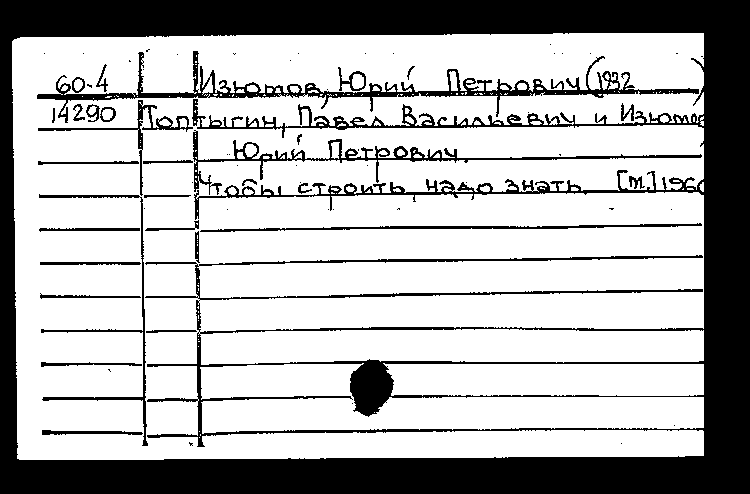 60-4 Изютов, Юрий Петрович (1932 )
14290 Топтыгин, Павел Васильевич и Изютов
Юрий Петрович.
Чтобы строить, надо знать. [М.] 1960